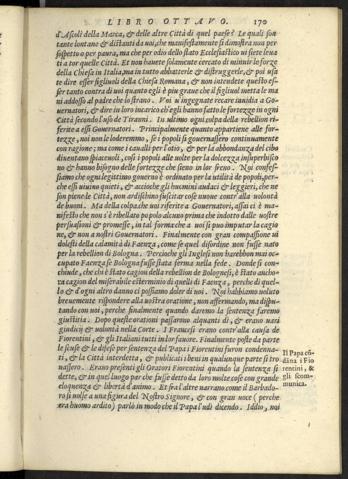 LIBRO OTTAVO. 170
d'Ascoli della Marca, & delle altre Città di quel paese? Le quali son
tante lontane & distanti da voi, che manifestamente si dimostra non per
sospetto o paura, ma che per odio dello stato Ecclesiastico vi siete leua
ti a tor quelle Città. Et non hauete solamente cercato di minuir le forze
della Chiesa in Italia, ma in tutto abbatterle & distruggerle, & poi usa
te dire esser figliuoli della Chiesa Romana, & non intendete questo es
ser tanto contra di voi quanto egli è piu graue che il figliuol metta le ma
ni addosso al padre che lo strano. Voi u'ingegnate recare inuidia a Go-
uernatori, & dire in loro incarico ch'egli hanno fatto le fortezze in ogni
Città secondo l'uso de Tiranni. In ultimo ogni colpa della rebellion ri-
ferite a essi Gouernatori. Principalmente quanto appartiene alle for-
tezze, noi non le loderemmo, se i popoli si gouernassero continuamente
con ragione; ma come i caualli per l'otio, & per la abbondanza del cibo
diuentano spiaceuoli, cosi i popoli alle volte per la dolcezza insuperbisco
no & hanno bisogno delle fortezze che seno in lor seno. Noi confes-
siamo che ogni legittimo gouerno è ordinato per la utilità de popoli, per-
che essi uiuino quieti, & accioche gli huomini audaci & leggieri, che ne
son piene le Città, non ardischino suscitar cose nuoue contr'alla volontà
de buoni. Ma della colpa che uoi riferite a Gouernatori, assai ci è ma-
nifesto che non s'è ribellato popolo alcuno prima che indotto dalle uostre
persuasioni & promesse, in tal forma che a uoi si puo imputar la cagio
ne, & non a nostri Gouernatori. Finalmente con gran compassione ui
dolesti della calamità di Faenza, come se quel disordine non fusse nato
per la rebellion di Bologna. Percioche gli Inglesi non harebbon mai oc-
cupato Faenza se Bologna fusse stata ferma nella fede. Donde si con-
chiude, che chi è stato cagion della rebellion de Bolognesi, è stato ancho-
ra cagion del miserabile esterminio di quelli di Faenza, perche di quel-
lo & d'ogni altro danno ci possiamo doler di uoi. Noi habbiamo uoluto
breuemente rispondere alla uostra oratione, non affermando, ma dispu-
tando con uoi, perche finalmente quando daremo la sentenza faremo
giustitia. Dopo queste orationi passarono alquanti dì, & erano uarij
giudicij & volontà nella Corte. I Francesi erano contr'alla causa de
Fiorentini, & gli Italiani tutti in lor fauore. Finalmente poste da parte
le scuse & le difese per sentenza del Papa i Fiorentini furon condenna-
ti, & la Città interdetta, & publicati i beni in qualunque parte si tro
uassero. Erano presenti gli Oratori Fiorentini quando la sentenza si
dette, & in quel luogo per che fusse detto da loro molte cose con grande
eloquenza & libertà d'animo. Et fra l'altre narrano come il Barbado-
ro si uolse a una figura del Nostro Signore, & con gran uoce (perche
era huomo ardito) parlò in modo che il Papa l'udì dicendo. Iddio, noi
Il Papa cō
dāna i Fio
rentini, &
gli scom-
munica.